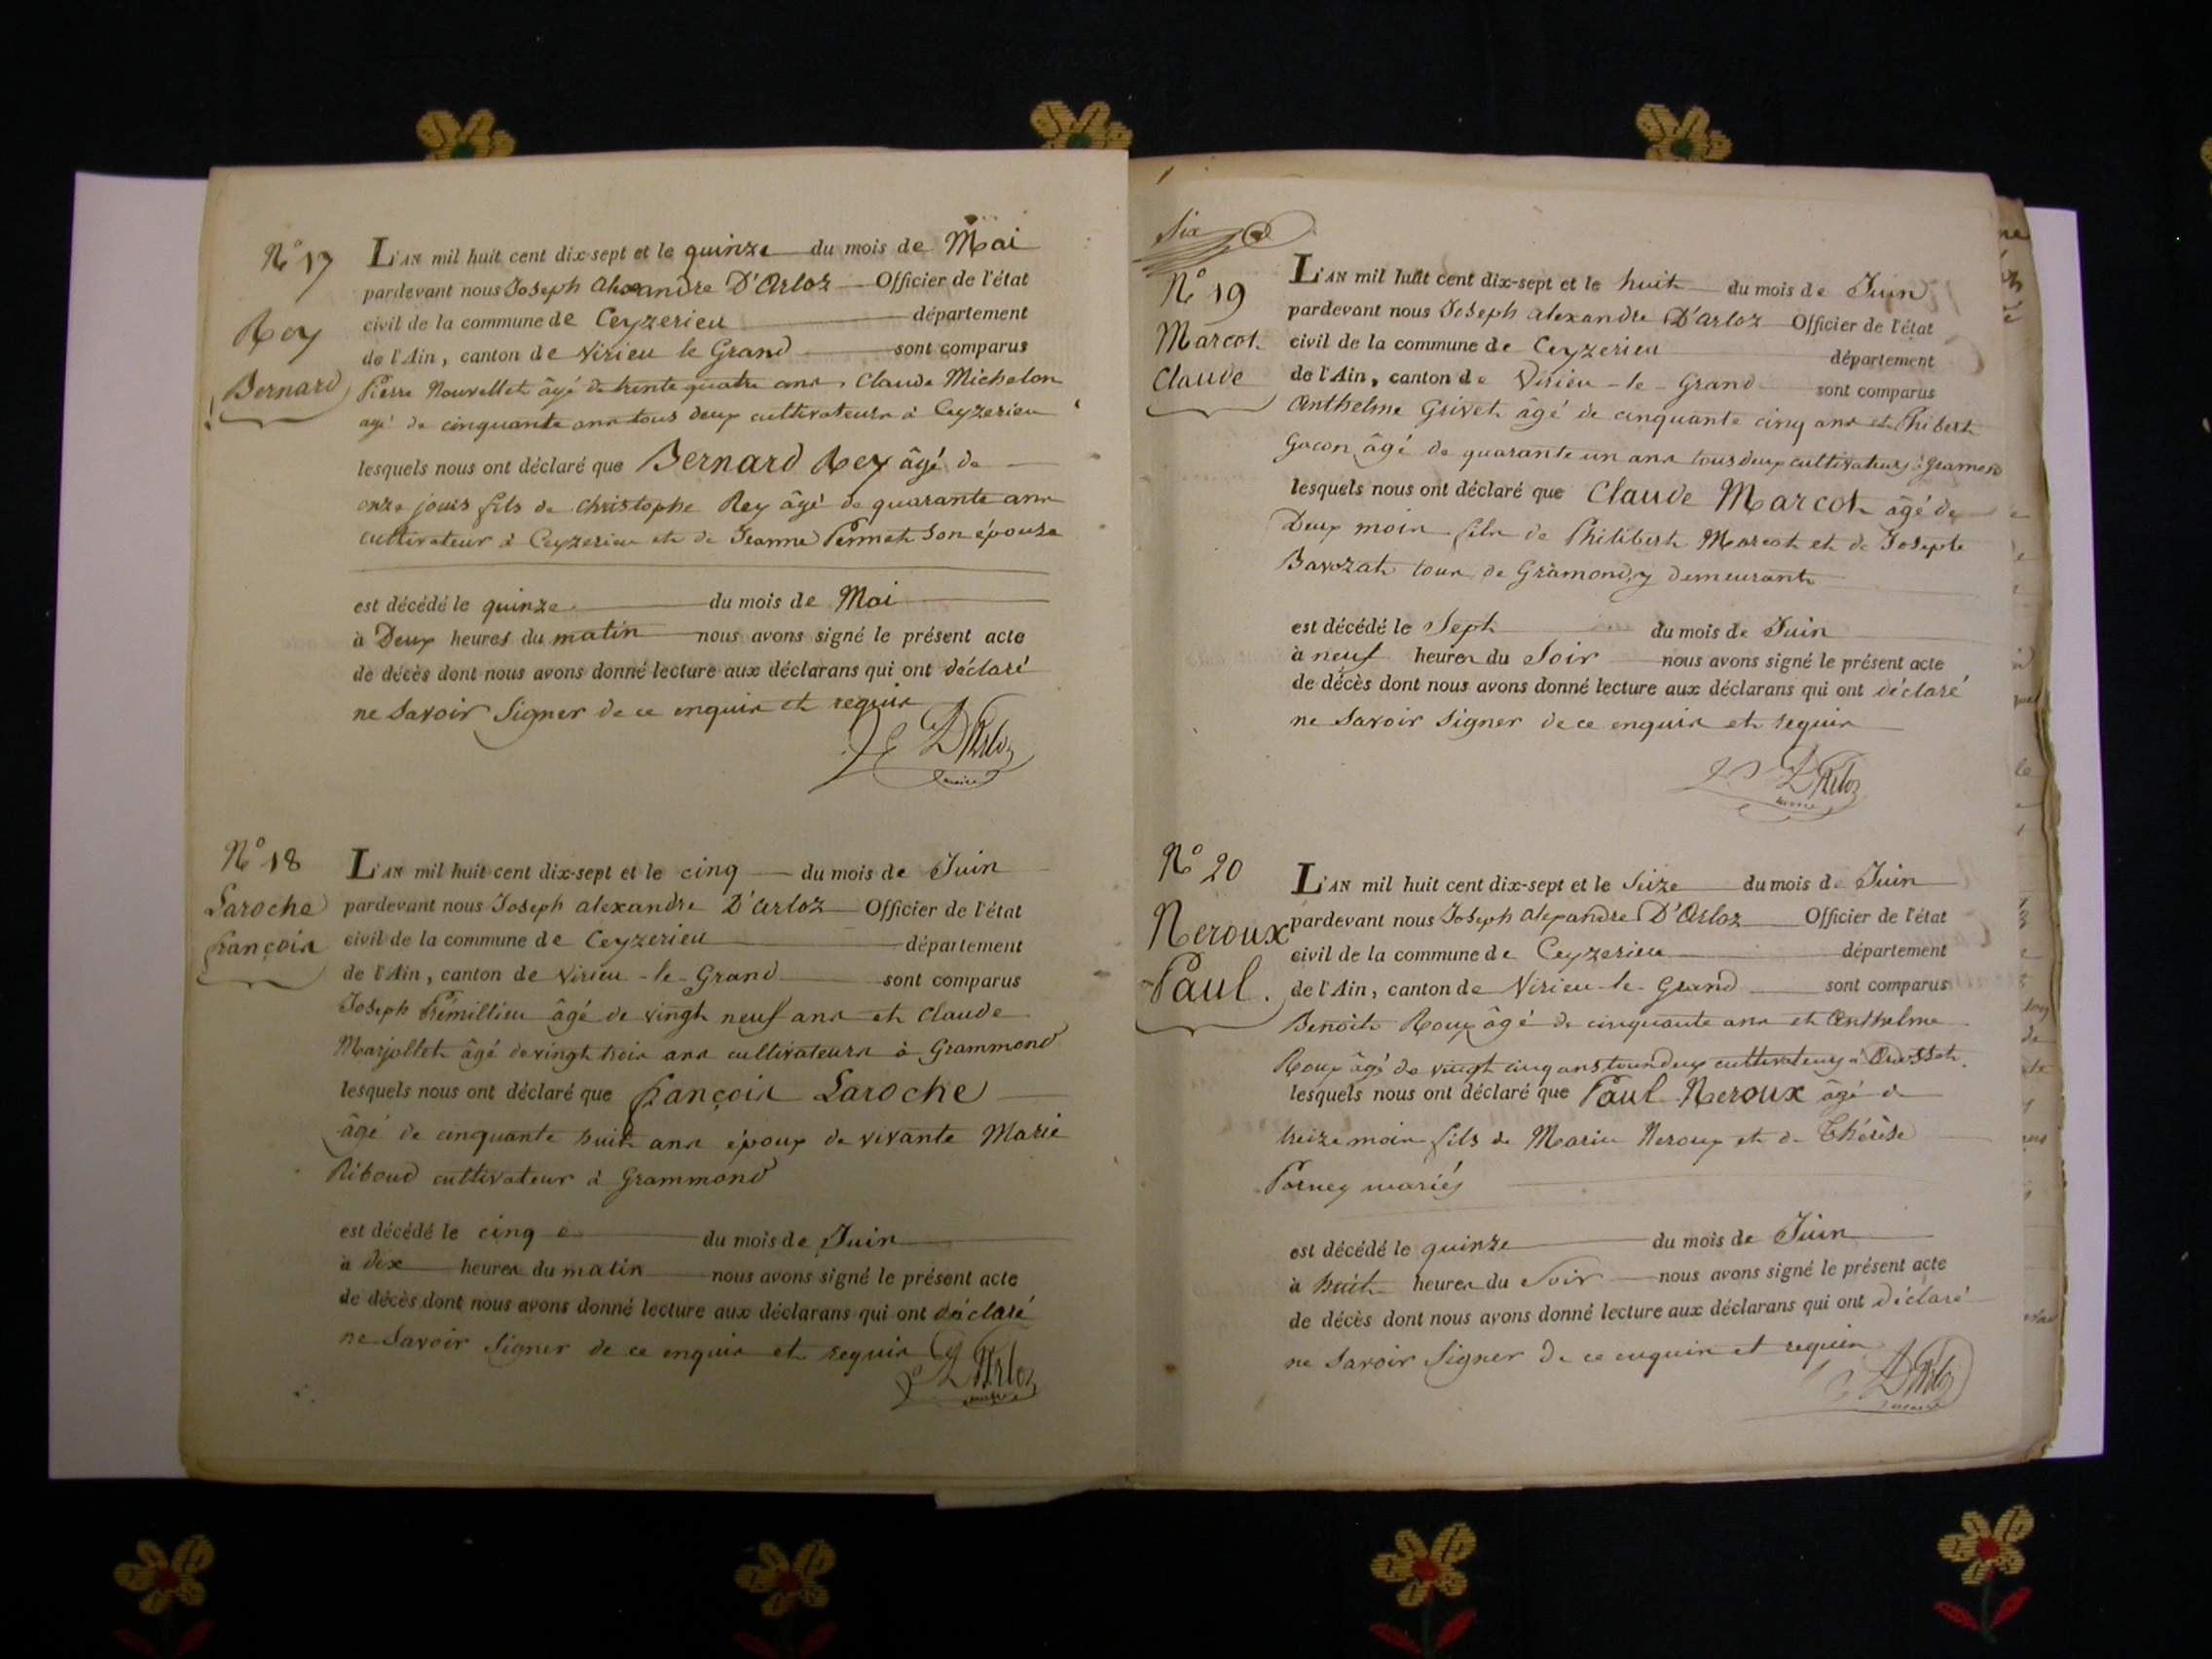 N° 17
Rey
Bernard
L'AN mil huit cent dix-sept et le quinze du mois de Mai
pardevant nous Joseph Alexandre D'Arloz Officier de l'état
civil de la commune de Ceyzerieu département
de l'Ain, canton de Virieu le Grand sont comparus
Pierre Nouvellet âgé de trente quatre ans, Claude Michelon
agé de cinquante ans tous deux cultivateurs à Ceyzerieu
lesquels nous ont déclaré que Bernard Rey âgé de
onze jours fils de Christophe Rey âgé de quarante ans
cultivateur à Ceyzerieu et de Jeanne Pernet son épouse
est décédé le quinze du mois de Mai
à Deux heures du matin nous avons signé le présent acte
de décès dont nous avons donné lecture aux déclarans qui ont déclaré
ne Savoir Signer de ce enquis et requis
DArloz
maire
N° 18
Laroche
françois
L'AN mil huit cent dix-sept et le cinq du mois de Juin
pardevant nous Joseph alexandre D'arloz Officier de l'état
civil de la commune de Ceyzerieu département
de l'Ain, canton de Virieu-le-Grand sont comparus
Joseph Prémillieu âgé de vingt neuf ans et Claude
Marjollet âgé de vingt trois ans cultivateurs à Grammond
lesquels nous ont déclaré que françois Laroche
âgé de cinquante huit ans époux de vivante Marie
Riboud cultivateur à Grammond
est décédé le cinq du mois de Juin
à dix heures du matin nous avons signé le présent acte
de décès dont nous avons donné lecture aux déclarans qui ont déclaré
ne Savoir Signer de ce enquis et requis
DArloz
maire
Six
N° 19
Marcot
Claude
L'AN mil huit cent dix-sept et le huit du mois de Juin
pardevant nous Joseph alexandre D'arloz Officier de l'état
civil de la commune de Ceyzerieu département
de l'Ain, canton de Virieu-le-Grand sont comparus
Anthelme Grivet âgé de cinquante cinq ans et Phibert
Gocon âgé de quarante un ans tous deux cultivateurs à Gramond
lesquels nous ont déclaré que Claude Marcot âgé de
Deux mois fils de Philibert Marcot et de Josepte
Bavozat tous de Gramond, y demeurant
est décédé le Sept du mois de Juin
à neuf heures du Soir nous avons signé le présent acte
de décès dont nous avons donné lecture aux déclarans qui ont déclaré
ne Savoir Signer de ce enquis et requis
DArloz
maire
N° 20
Neroux
Paul.
L'AN mil huit cent dix-sept et le Seize du mois de Juin
pardevant nous Joseph Alexandre D'Arloz Officier de l'état
civil de la commune de Ceyzerieu département
de l'Ain, canton de Virieu-le-Grand sont comparus
Benoit Roux âgé de cinquante ans et Anthelme
Roux âgé de vingt cinq ans tous deux cultivateurs à
lesquels nous ont déclaré que Paul Neroux âgé de
treize mois fils de Marin Neroux et de Thérèse
Parney mariés
est décédé le quinze du mois de Juin
à huit heures du Soir nous avons signé le présent acte
de décès dont nous avons donné lecture aux déclarans qui ont déclaré
ne Savoir Signer de ce enquis et requis
DArloz
maire